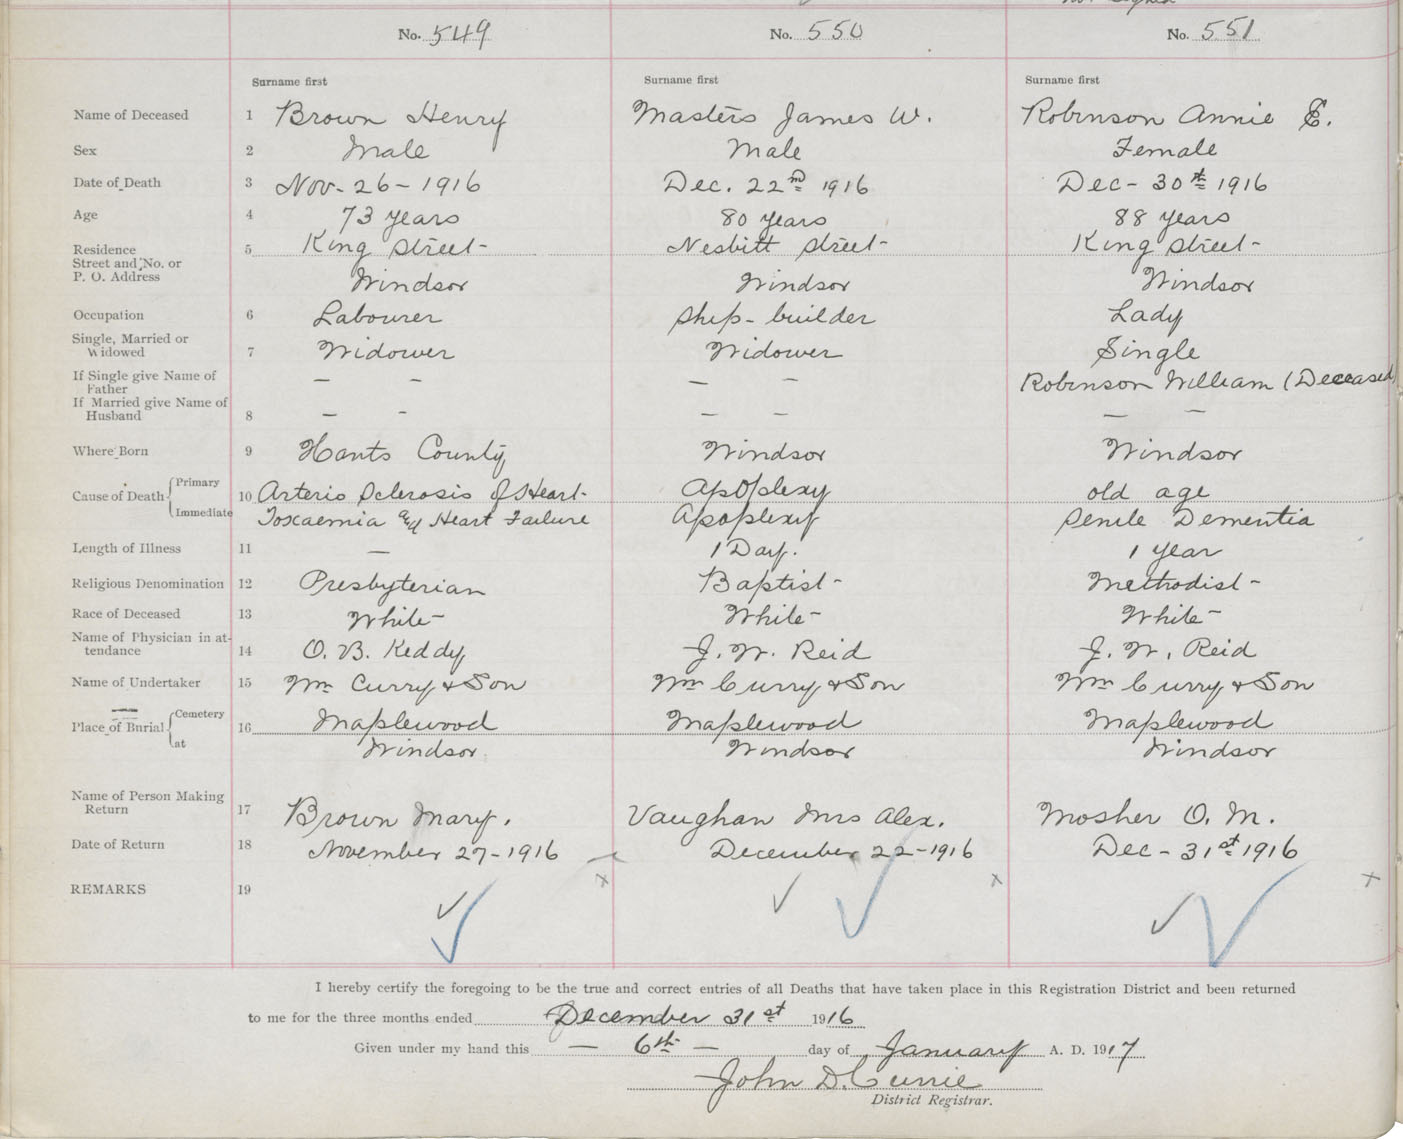 No. 549 No. 550 No. 551
Surname first Surname first Surname first
Name of Deceased 1 Brown Henry Masters James W. Robinson Annie E.
Sex 2 Male Male Female
Date of Death 3 Nov- 26- 1916 Dec. 22nd 1916 Dec- 30th 1916
Age 4 73 years 80 years 88 years
Residence 5 King Street- Nesbitt Street- King Street-
Street and No. or
P. O. Address Windsor Windsor Windsor
Occupation 6 Labourer Ship-builder Lady
Single, Married or
Widowed 7 Widower Widower Single
If Single give Name of
Father — - — - Robinson William (Deceased
If Married give Name of
Husband 8 — - — - — -
Where Born 9 Hants County Windsor Windsor
Cause of Death Primary 10 Arterio Sclerosis of Heart- Apoplexy old age
Immediate Toxaemia and Heart Failure Apoplexy Senile Dementia
Length of Illness 11 — 1 Day. 1 year
Religious Denomination 12 Presbyterian Baptist- Methodist-
Race of Deceased 13 White- White- White-
Name of Physician in at-
tendance 14 O. B. Keddy J. W. Reid J. W. Reid
Name of Undertaker 15 Wm Curry & Son Wm Curry & Son Wm Curry & Son
Place of Burial Cemetery 16 Maplewood Maplewood Maplewood
at Windsor Windsor Windsor
Name of Person Making
Return 17 Brown Mary. Vaughan Mrs Alex. Mosher O. M.
Date of Return 18 November 27-1916 December 22-1916 Dec- 31st 1916
REMARKS 19
I hereby certify the foregoing to be the true and correct entries of all Deaths that have taken place in this Registration District and been returned
to me for the three months ended December 31st 1916
Given under my hand this — 6th — day of January A. D. 1917
John D. Currie
District Registrar.